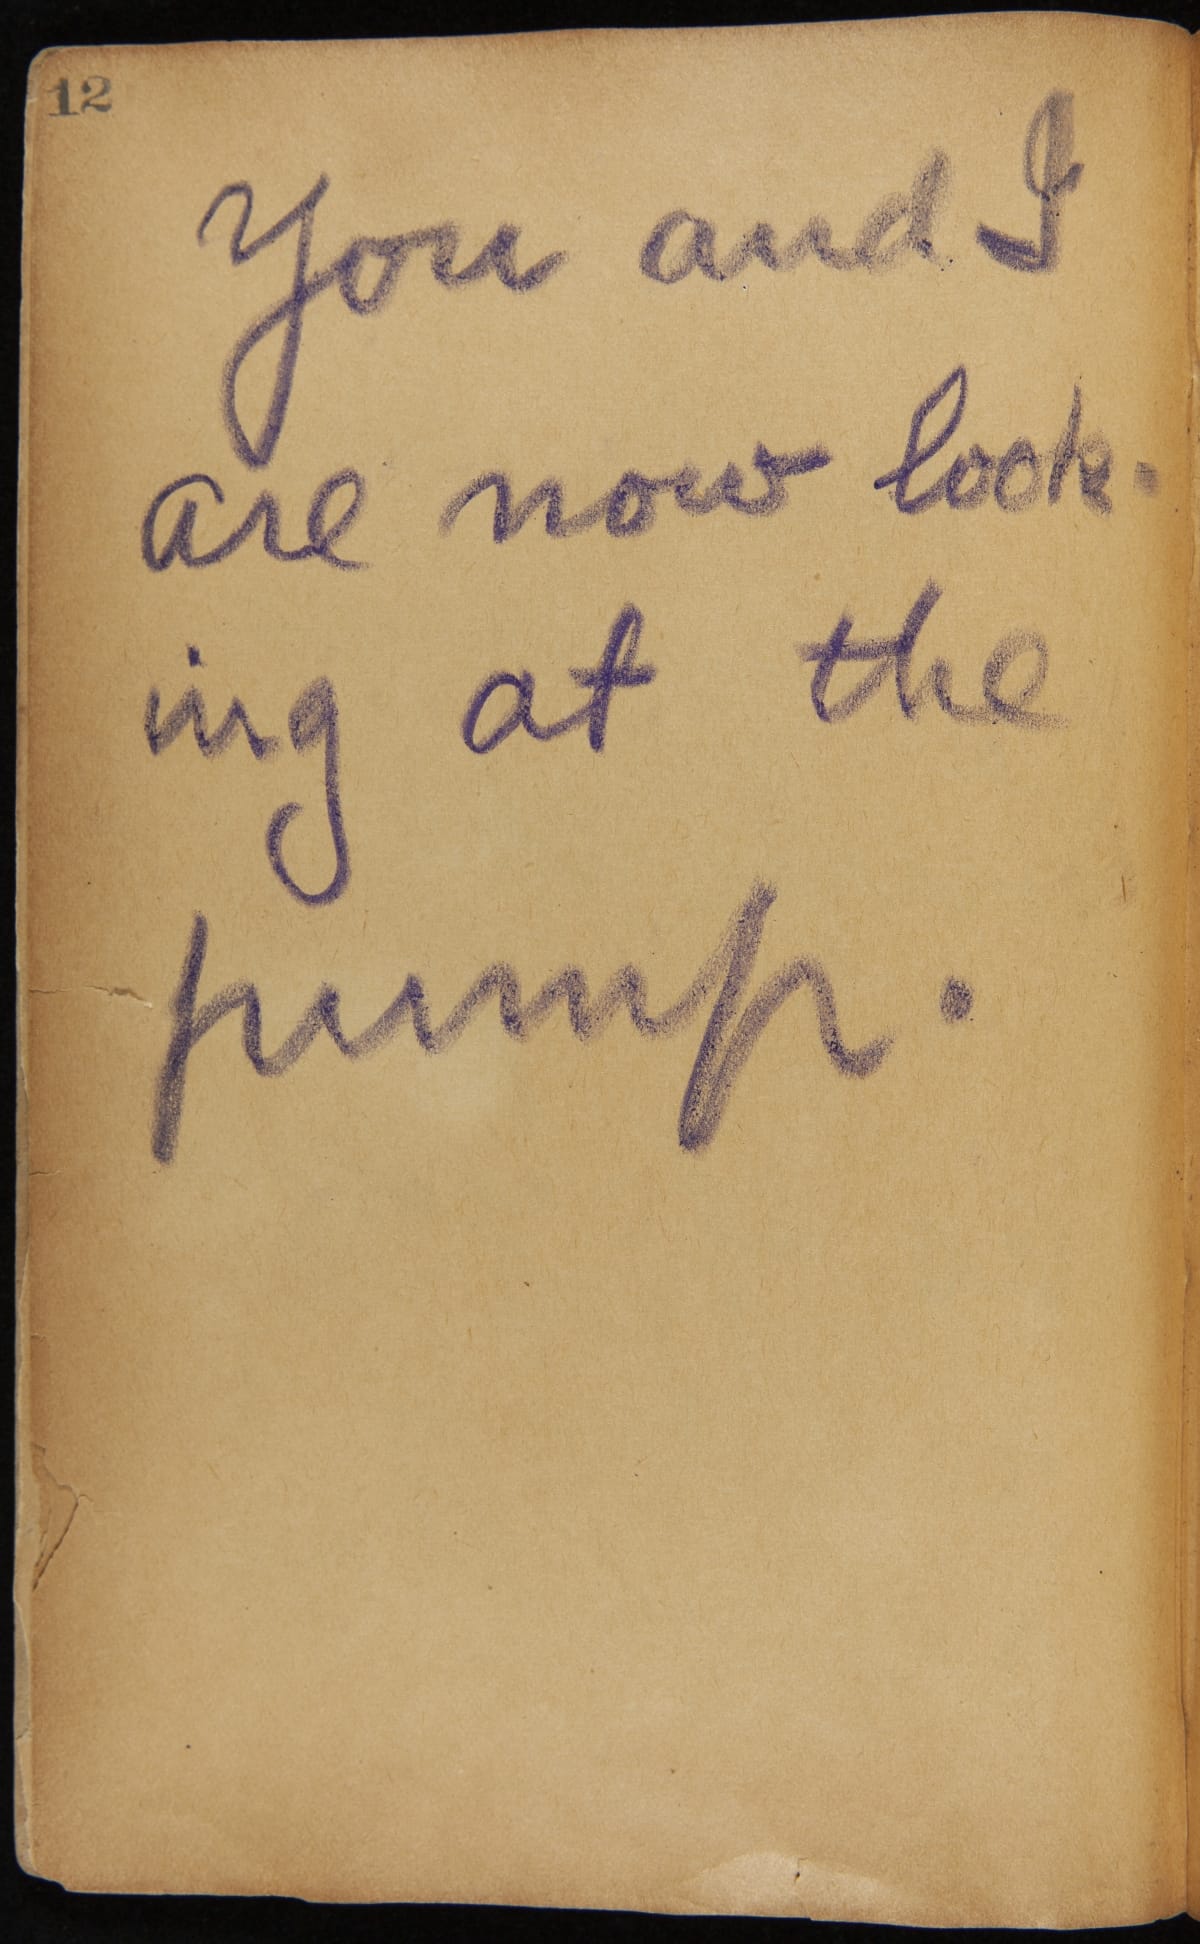 12
You and I
are now look-
ing at the
pump.